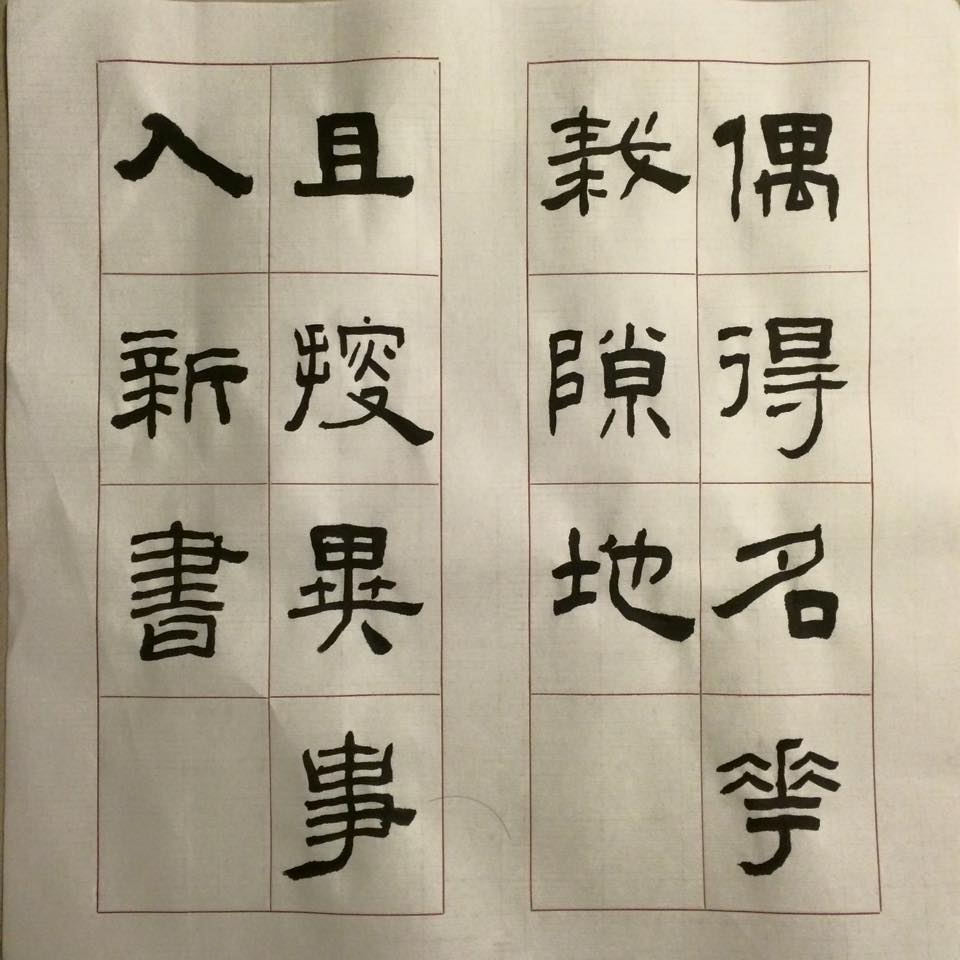 偶得名華
栽隙地
且搜異事
入新書